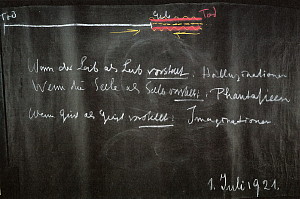 Tod Geb. Tod
Wenn der Leib als Leib vorstellt: Halluzinationen
Wenn die Seele als Seele vorstellt: Phantasieen
Wenn Geist als Geist vorstellt: Imaginationen
1. Juli 1921.